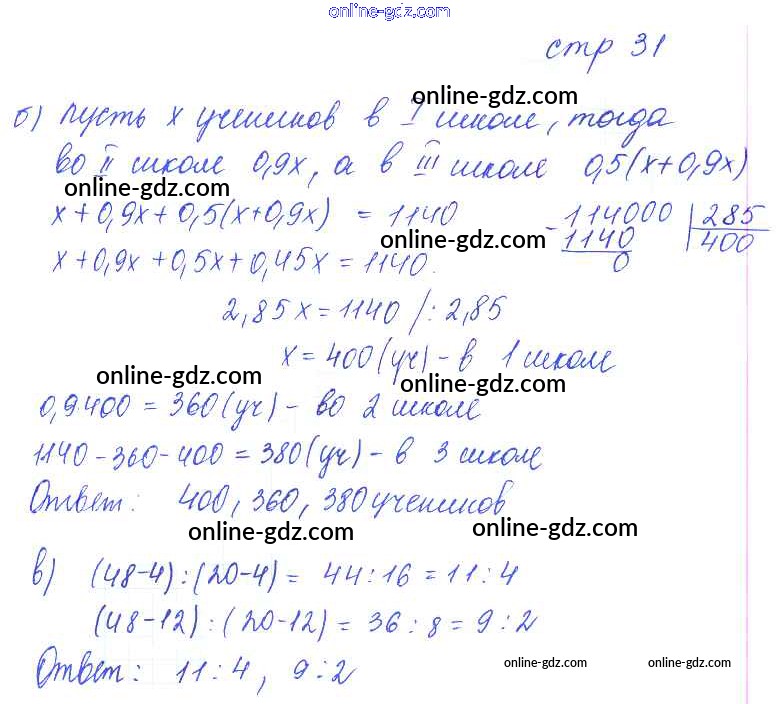 online-gdz.com
стр 31
online-gdz.com
б) Пусть х учеников в I школе, тогда
во II школе 0,9х, а в III школе 0,5(х+0,9х)
online-gdz.com
х+0,9х+0,5(х+0,9х) = 1140
114000 | 285
- 1140 400
0
online-gdz.com
х+0,9х+0,5х+0,45х=1140.
2,85х=1140 /:2,85
х=400(уч)-в 1 школе
online-gdz.com online-gdz.com
0,9400=360(уч)-во 2 школе
1140-360-400=380(уч)-в 3 школе
Ответ: 400, 360, 380 учеников
online-gdz.com online-gdz.com
в) (48-4):(20-4)= 44:16=11:4
(48-12):(20-12)=36:8=9:2
Ответ: 11:4, 9:2
online-gdz.com online-gdz.com